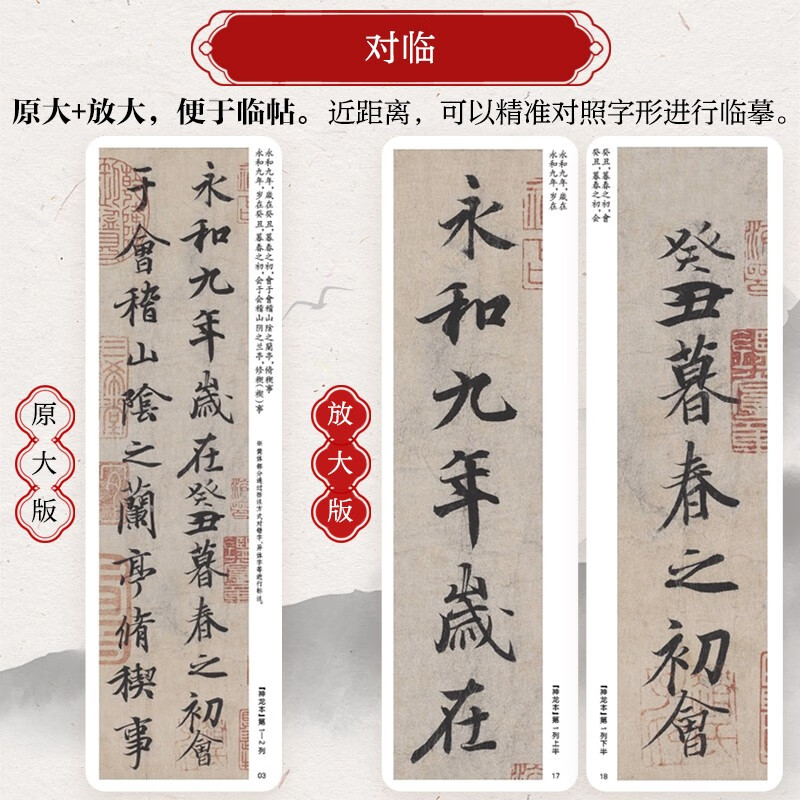 对临
原大+放大，便于临帖。近距离，可以精准对照字形进行临摹。
原大版
永和九年，歲在癸丑，暮春之初，會于會稽山陰之蘭亭，脩禊事
永和九年，岁在癸丑，暮春之初，会于会稽山阴之兰亭，修禊（禊）事
永和九年歲在癸丑暮春之初會
于會稽山陰之蘭亭脩禊事
【神龙本】第1—2列
03
放大版
永和九年，歲在
永和九年，岁在
永和九年歲在
【神龙本】第1列上半
17
癸丑，暮春之初，會
癸丑，暮春之初，会
癸丑暮春之初會
【神龙本】第1列下半
18